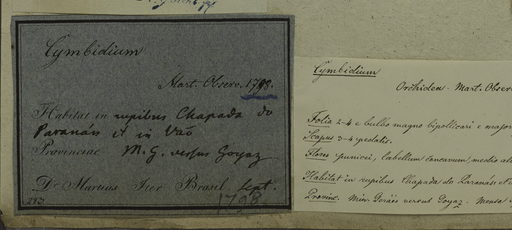 Cymbidium
Mart. Observ. 1798.
Habitat in rupibus Chapada do
Paranán et in Vão
Provinciae M. G. versus Goyaz
Dr Martius Iter Brasil. Sept.
1798
Cymbidium
Orchideae. Mart. Observ
Folia 2-4 e bulbo magno bipollicari e majore
Scapus 3-4 pedalis.
Flores punicei, labellum concavum, medio
Habitat in rupibus Chapada do Paranán et
Provinc. Min. Geraës versus Goyaz. Mensa